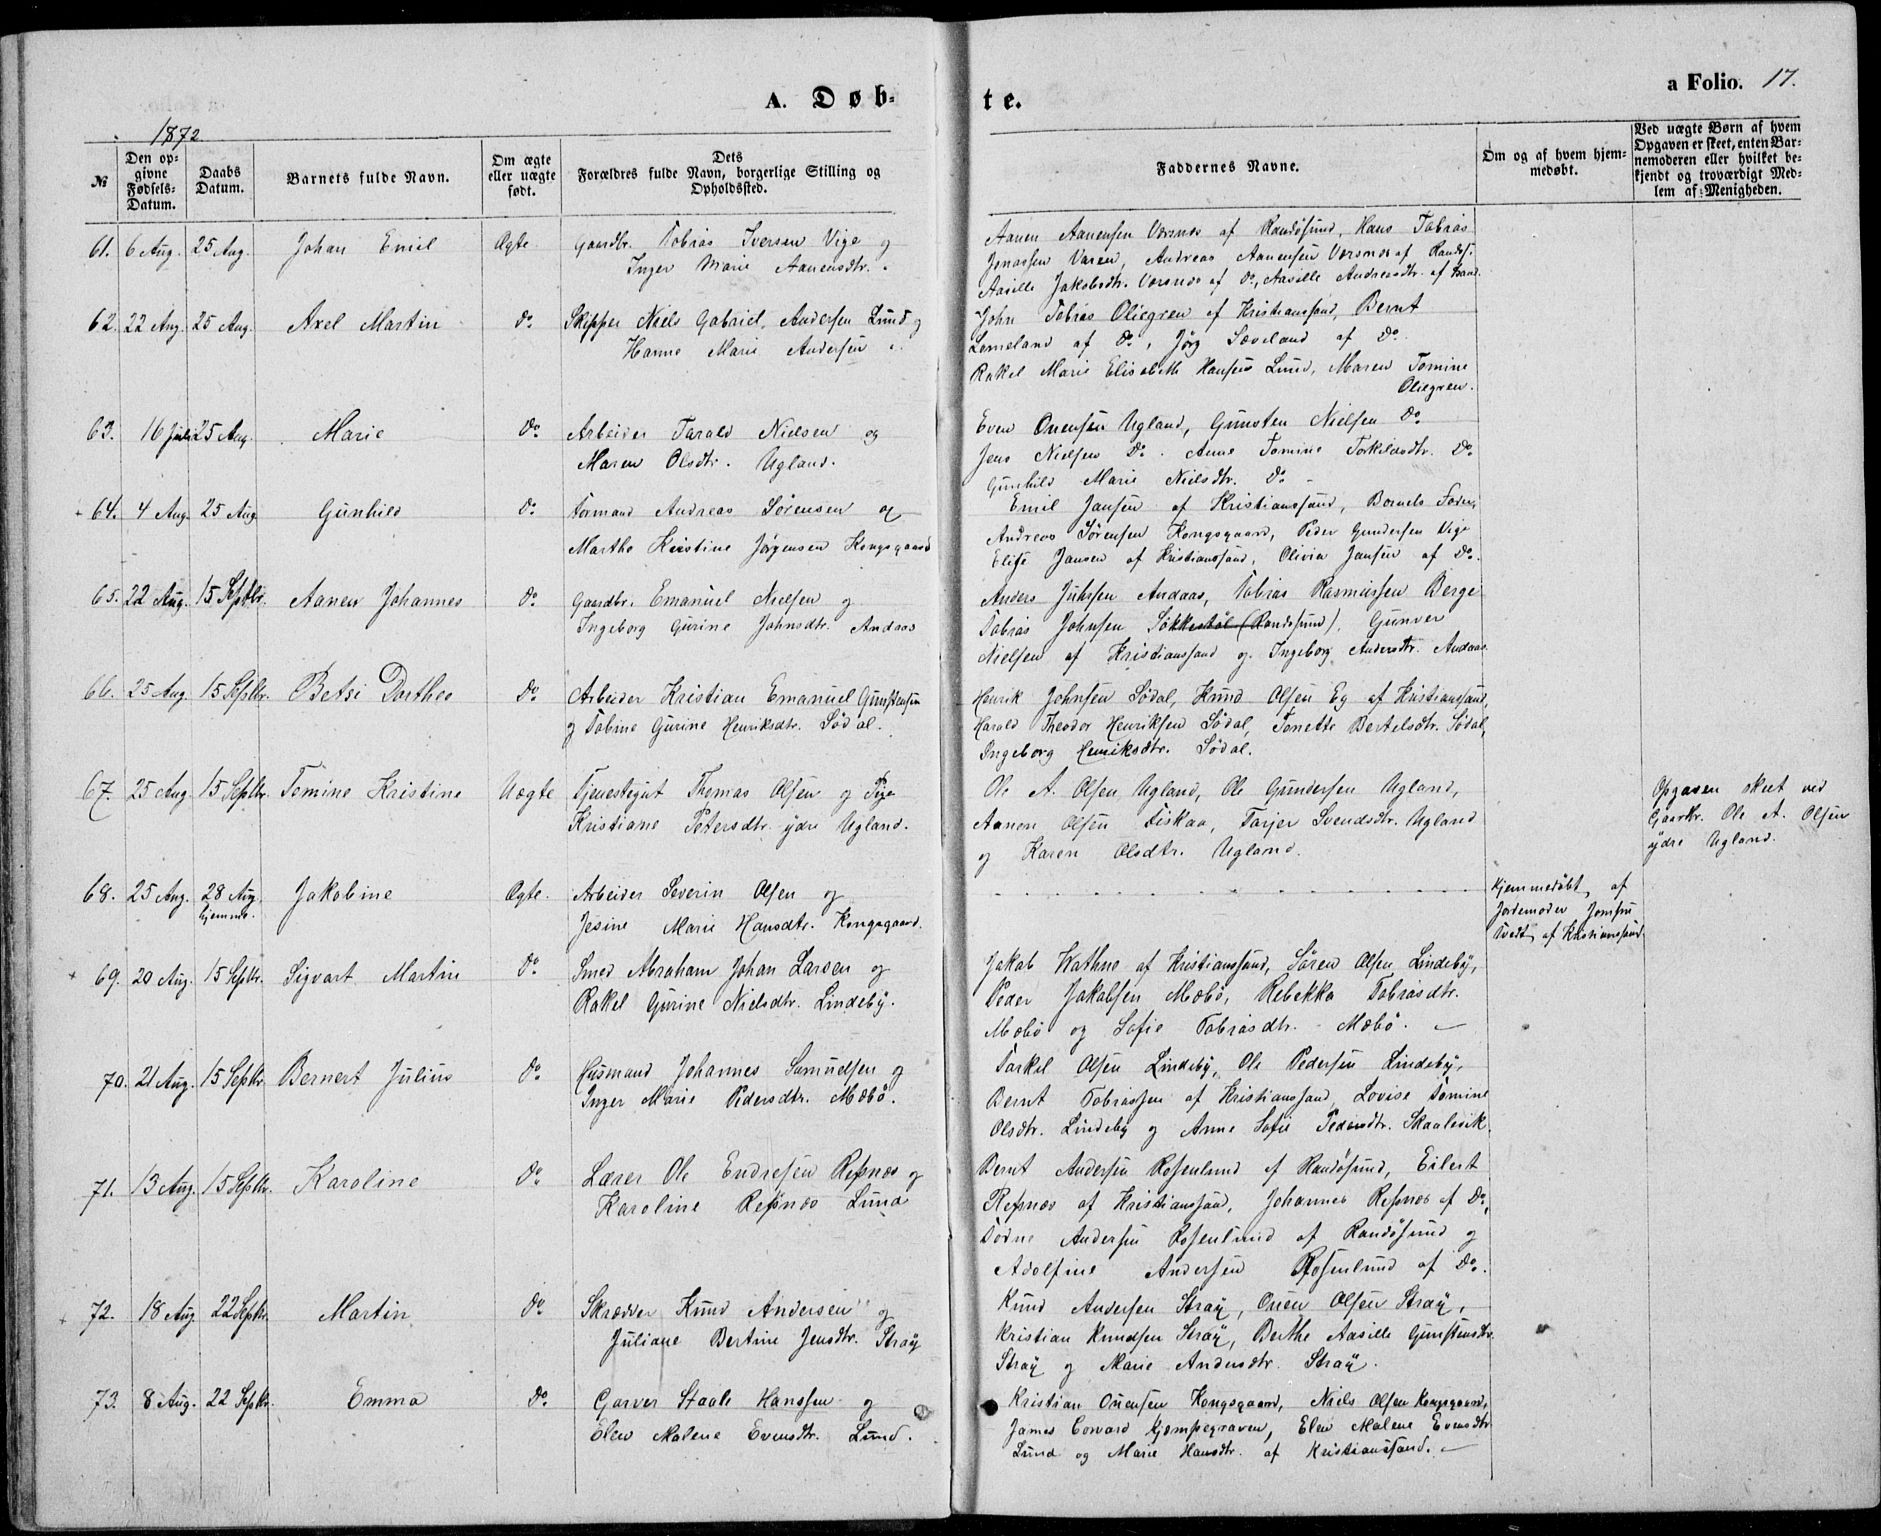 A. Døb-
te.
a Folio. 17.
1872
№
Den op-
givne
Fødsels-
Datum.
Daabs
Datum.
Barnets fulde Navn.
Om ægte
eller uægte
født.
Dets
Forældres fulde Navn, borgerlige Stilling og
Opholdssted.
Faddernes Navne.
Om og af hvem hjem-
medøbt.
Ved uægte Børn af hvem
Opgaven er skeet, enten Bar-
nemoderen eller hvilket be-
kjendt og troværdigt Med-
lem af Menigheden.
61. 6 Aug. 25 Aug. Johan Emil Ægte Gaardbr. Tobias Iversen Vige og
Inger Marie Aanensdtr.
Aanen Aanensen Vorsnes af Randøsund, Hans Tobias
Jonassen Varen, Andreas Aanensen Vorsnes af Randøs.
Aasille Jakobsdtr. Vorsnes af Do, Aasille Andreasdtr. af Rand.
62. 22 Aug. 25 Aug. Axel Martin Do Skipper Niels Gabriel Andersen Lund og
Hanne Marie Andersen
John Tobias Oliegren af Kristianssand, Bernt
Lomeland af Do, Jørg Sæveland af Do.
Rakel Marie Elisabeth Hansen Lund, Maren Tomine
Oliegren.
63. 16 Juli 25 Aug. Marie Do Arbeider Tarald Nielsen og
Maren Olsdtr. Ugland.
Even Onensen Ugland, Gunsten Nielsen Do
Jens Nielsen Do. Anne Tomine Torkildsdtr. Do
Gunhild Marie Nielsdtr. Do
+ 64. 4 Aug. 25 Aug. Gunhild Do Formand Andreas Sørensen og
Marthe Kristine Jørgensen Kongsgaard
Emil Jansen af Kristianssand, Barnets Fader,
Andreas Sørensen Kongsgaard, Peder Gundersen Vige
Elise Jansen af Kristianssand, Olivia Jansen af Do.
65. 22 Aug. 15 Septbr. Aanen Johannes Do Gaardbr. Emanuel Nielsen og
Ingeborg Gurine Johnsdtr. Andaas
Anders Juhssen Andaas, Tobias Rasmussen Berge
Tobias Johnsen Sökkestöl (Randøsund), Gunver
Nielsen af Kristianssand og Ingeborg Andersdtr. Andaas.
66. 25 Aug. 15 Septbr. Betsi Dorthea Do Arbeider Kristian Emanuel Gunstensen
og Tobine Gurine Henriksdtr. Södal.
Henrik Johnsen Södal, Knud Olsen Eg af Kristianssand,
Harald Theodor Henriksen Södal, Tonette Bertelsdtr. Södal,
Ingeborg Henriksdtr. Södal.
67. 25 Aug. 15 Septbr. Tomine Kristine Uægte Tjenestegut Thomas Olsen og Pige
Kristiane Petersdtr. ydre Ugland.
Ole A. Olsen Ugland, Ole Gundersen Ugland,
Aanen Olsen Fiskaa, Tarjer Svendsdtr. Ugland
og Karen Olsdtr. Ugland.
Opgaven skeet ved
Gaardbr. Ole A. Olsen
ydre Ugland.
68. 25 Aug. 28 Aug. Jakobine Ægte. Arbeider Severin Olsen og
hjemme.
Jesine Marie Hansdtr. Kongsgaard.
Hjemmedøbt af
Jordemoder Jomfru
Tvedt af Kristianssand.
+ 69. 20 Aug. 15 Septbr. Sigvart Martin Do Smed Abraham Johan Larsen og
Rakel Gurine Nielsdtr. Lindeby.
Jakob Wathne af Kristianssand, Sören Olsen Lindeby,
Peder Jakobsen Mæbö, Rebekka Tobiasdtr.
Mæbö og Sofie Tobiasdtr. Mæbö.
70. 21 Aug. 15 Septbr. Bernert Julius Do Husmand Johannes Samuelsen og
Inger Marie Pedersdtr. Mæbö.
Torkel Olsen Lindeby, Ole Pedersen Lindeby,
Bernt Tobiassen af Kristianssand, Lovise Tomine
Olsdtr. Lindeby og Anne Sofie Pedersdtr. Skaalevik.
71. 13 Aug. 15 Septbr. Karoline Do Lærer Ole Endresen Refsnes og
Karoline Refsnes Lund
Bernt Andersen Rosenlund af Randøsund, Eilert
Refsnes af Kristianssand, Johannes Refsnes af Do,
Andersen Rosenlund af Randøsund og
Adolfine Andersen Rosenlund af Do.
+ 72. 18 Aug. 22 Septbr. Martin Do Skrædder Knud Andersen og
Juliane Bertine Jensdtr. Stray
Knud Andersen Stray, Onen Olsen Stray,
Kristian Knudsen Stray, Berthe Aasille Gunstensdtr.
Stray og Marie Andersdtr. Stray.
73. 8 Aug. 22 Septbr. Emma Do Garver Staale Hanssen og
Elen Malene Evensdtr. Lund.
Kristian Onensen Kongsgaard, Niels Olsen Kongsgaard,
James Corvard Kjempegraven, Elen Malene Evensdtr.
Lund og Marie Hansdtr. af Kristianssand.